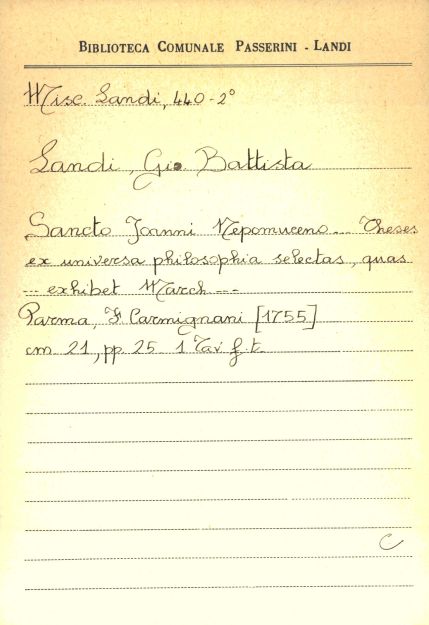 BIBLIOTECA COMUNALE PASSERINI - LANDI
Misc. Landi, 440-2°
Landi, Gio Battista
Sancto Joanni Nepomuceno... Theses
ex universa philosophia selectas, quas
... exhibet March...
Parma, F Carmignani [1755]
cm 21, pp. 25 1 Tav f.t.
C